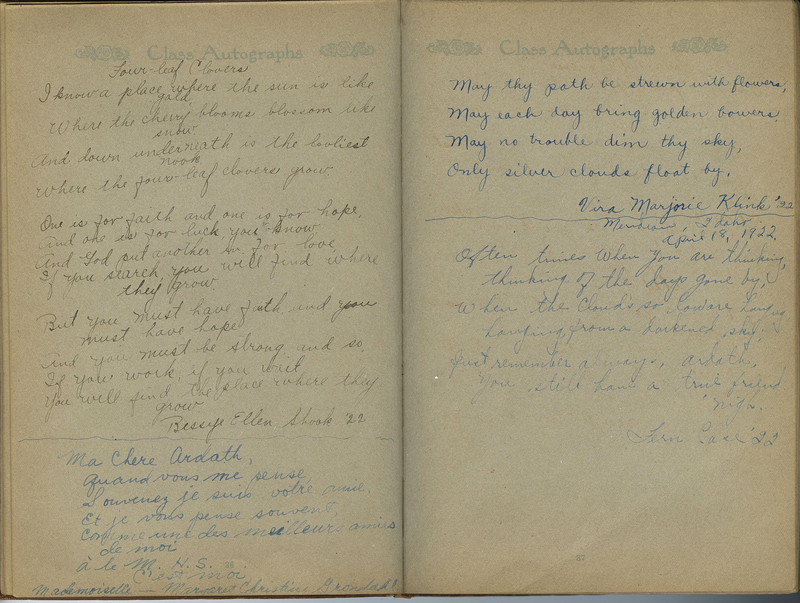 Class Autographs
Four-leaf Clovers
I know a place where the sun is like
gold
Where the cherry blooms blossom like
snow.
And down underneath is the loveliest
nook
Where the four-leaf clovers grow.
One is for faith and one is for hope,
And one is for luck you know
And God put another in for love
If you search you will find where
they grow
But you must have faith and you
must have hope
And you must be strong and so
If you work, if you wait
You will find the place where they
grow
Bessye Ellen Shook '22
Ma Chere Ardath,
Quand vous me pense
Souvenez je suis votre amie.
Et je vous pense souvent,
Comme une des meilleurs amies
de moi
à le M. H. S.
C'est moi
Mademoiselle — Christine
Class Autographs
May thy path be strewn with flowers,
May each day bring golden bowers.
May no trouble dim thy sky,
Only silver clouds float by.
Vira Marjorie Klink '22
Meridian, Idaho
April 18, 1922.
Often times when you are thinking,
thinking of the days gone by,
When the clouds so low are hanging
hanging from a darkened sky;
Just remember always, Ardath,
You still have a true friend
nigh.
Fern Case '22
37